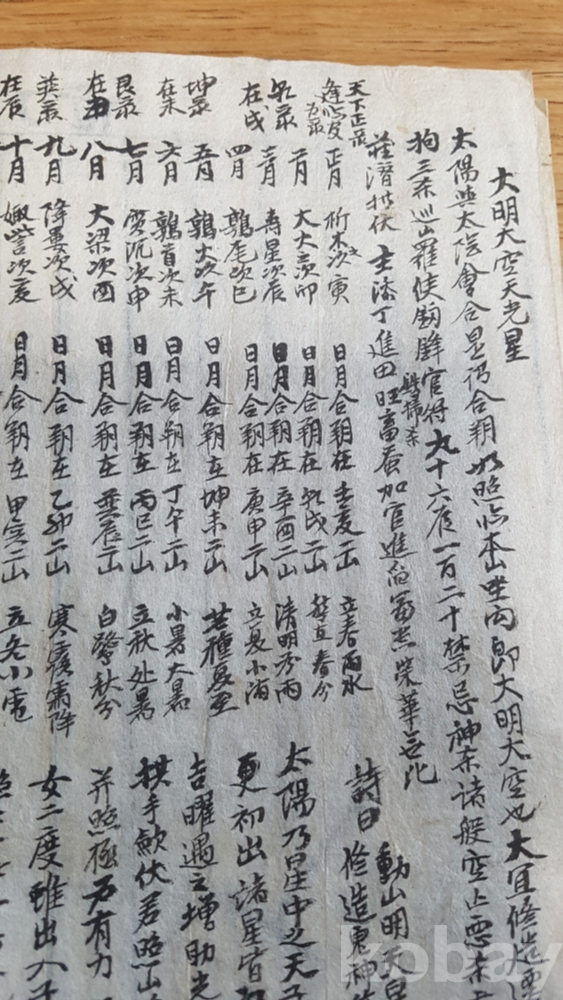 大明大空天光星
太陽與太陰會合是仍合朔如照临本山坐向即大明大空也大宜修造
拘三杀巡山羅使劍鋒官符九十六底一百二十禁忌神杀諸般空亡悪杀
藏潜拱伏主添丁進田旺畜蚕加官進爵冨贵榮華无比
天下正最
正月 析木次寅 日月合朔在壬亥二山 立春雨水
二月 大火次卯 日月合朔在乾戌二山 驚直春分
三月 壽星次辰 日月合朔在辛酉二山 清明谷雨
四月 鶉尾次巳 日月合朔在庚申二山 立夏小滿
五月 鶉火次午 日月合朔在坤未二山 芒種夏至
六月 鶉首次未 日月合朔在丁午二山 小暑大暑
七月 實沉次申 日月合朔在丙巳二山 立秋处暑
八月 大梁次酉 日月合朔在巽辰二山 白露秋分
九月 降婁次戌 日月合朔在乙卯二山 寒露霜降
十月 娵訾次亥 日月合朔在甲寅二山 立冬小雪
在戌
在未
在辰
詩曰 動山明
修造鬼神
太陽乃是星中之天子
更初出諸星皆
吉曜遇之增助光
拱手歛伏若照山
并照極乃有力
女二度雖出入子
kobay